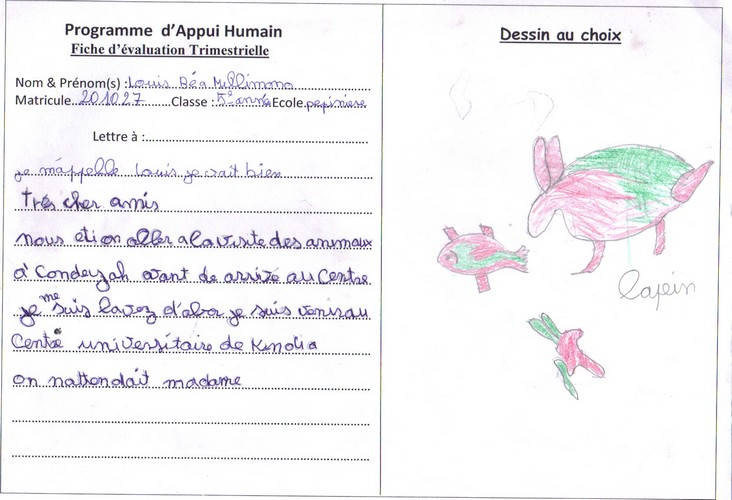 Programme d'Appui Humain
Fiche d'évaluation Trimestrielle
Nom & Prénom(s) : Louis Béa Millimono
Matricule 201027 Classe : 5e année Ecole pepiniere
Lettre à :
je m'appelle Louis je vait bien
très cher amis
nous etion aller a la visite des animaux
à Condeyah avant de arrivé au Centre
je me suis lavez d'abor je suis venis au
Centre universitaire de Kindia
on nattendait madame
Dessin au choix
lapin